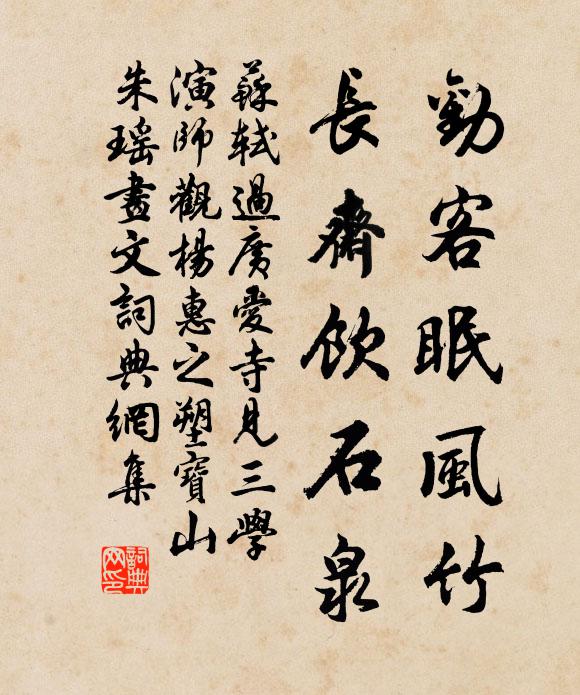 勸客眠風竹
長齋飲石泉
蘇軾過廣愛寺見三學
演師觀楊惠之塑寶山
朱瑤畫文詞典網集
詞典
网印